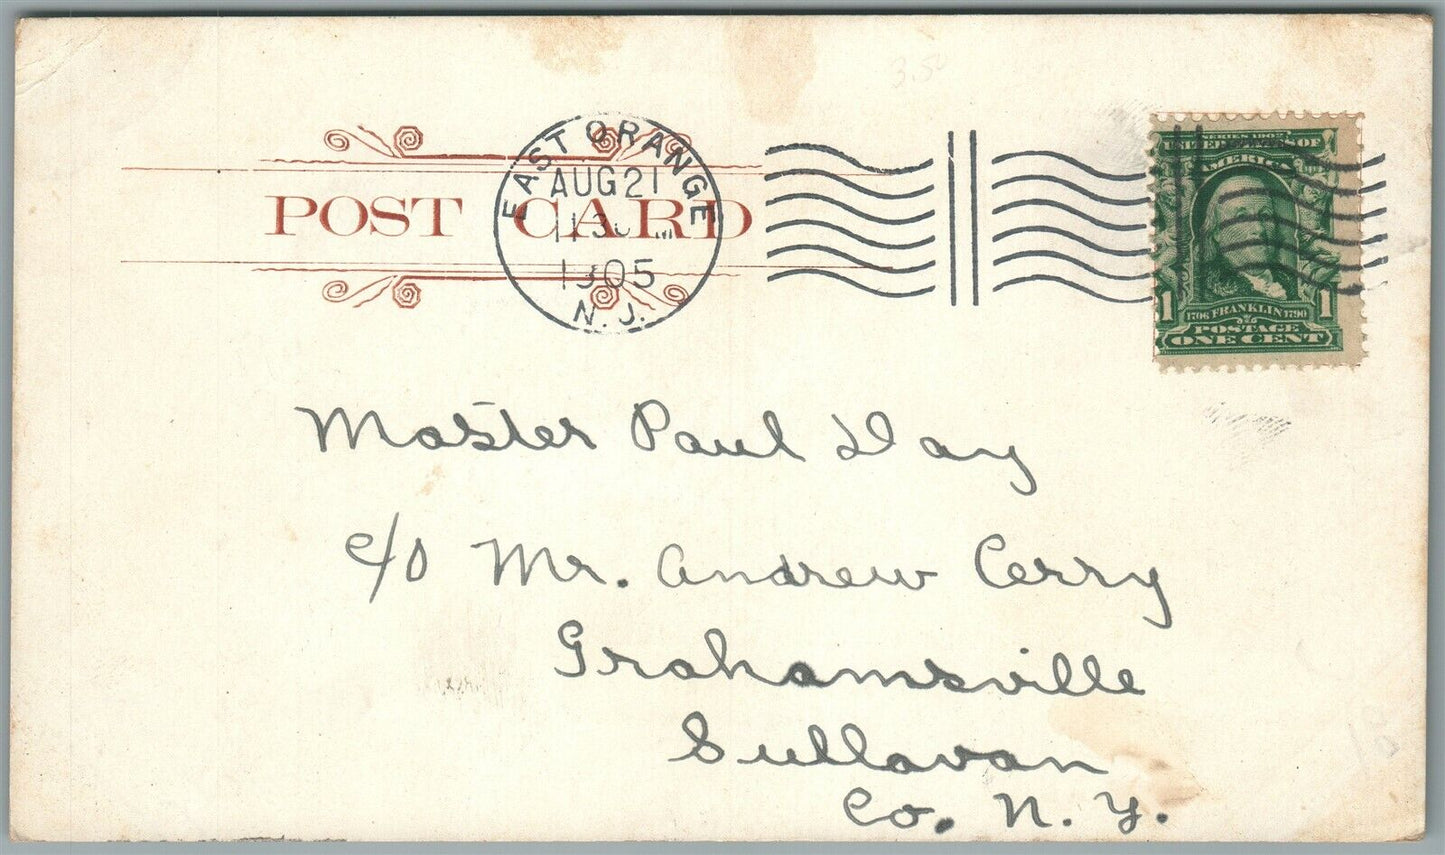 3.50
EAST ORANGE
AUG 21
1905
N. J.
POST CARD
SERIES 1902
UNITED STATES OF
AMERICA
1 1
1706 FRANKLIN 1790
POSTAGE
ONE CENT
Master Paul Day
c/o Mr. Andrew Cerry
Grahamsville
Sullavan
Co. N. Y.